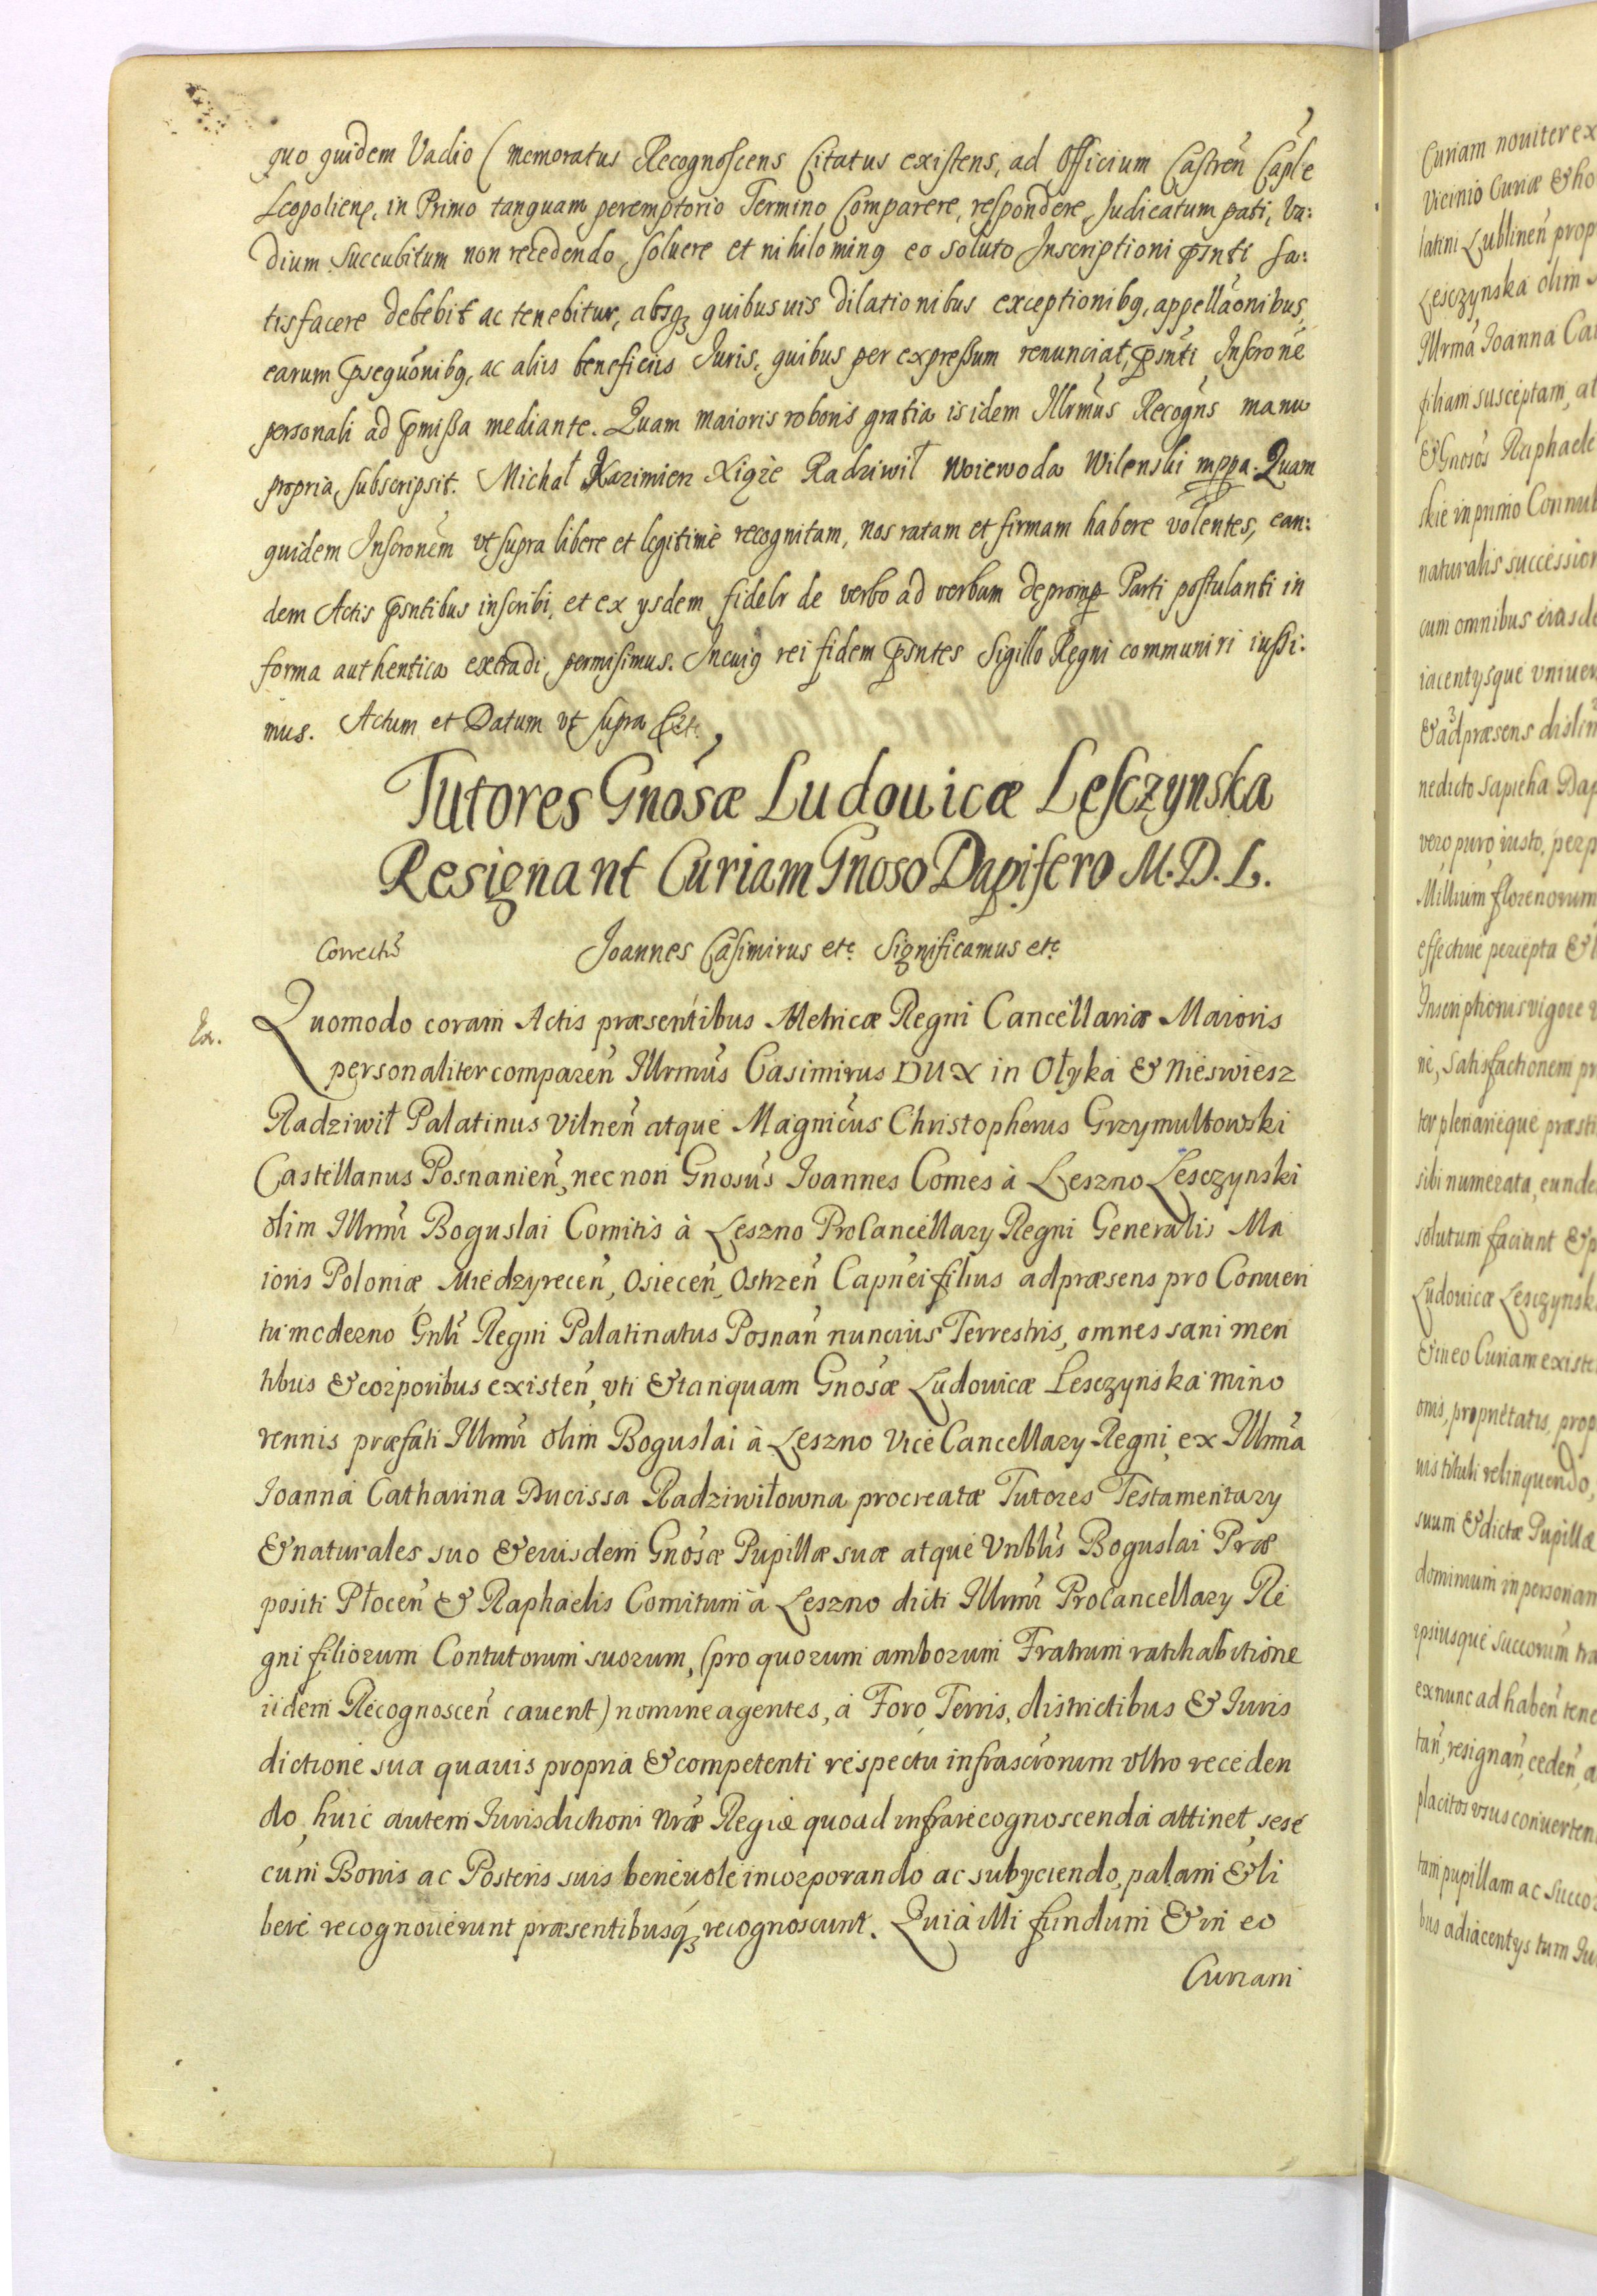 quo quidem Vadio (memoratus Recognoscens Citatus existens, ad Officium Castren̄ Caple
Leopolien̄, in Primo tanquam peremptorio Termino Comparere, respondere, Judicatum pati, Va:
dium succubitum non recedendo, soluere et nihilominq eo soluto Inscriptioni p̄snti sa:
tisfacere debebit ac tenebitur, absq; quibusuis dilationibus exceptionibq, appellāonibus
earum p̄sequōnibq, ac aliis beneficiis Juris, quibus per expressum renunciat, p̄snti Inscrōne
personali ad p̄missa mediante. Quam maioris roboris gratia is idem Illrmūs Recogn̄s manu
propria subscripsit. Michał Kazimierz Xiąże Radziwił Woiewoda Wilenski mppa. Quam
quidem Inscrōnem vt supra libere et legitimè recognitam, nos ratam et firmam habere volentes, ean:
dem Actis p̄sntibus inscribi, et ex ysdem fidelr de verbo ad verbum depromp Parti postulanti in
forma authentica extradi, permisimus. Incuiq rei fidem p̄sntes Sigillo Regni communiri iussi:
mus. Actum et Datum vt supra Etc.
Tutores Gnōsæ Ludouicæ Lesczynska
Resignant Curiam Gnoso Dapifero M. D. L.
Correctūs Joannes Casimirus etc. Significamus etc.
Ex. Quomodo coram Actis præsentibus Metricæ Regni Cancellariæ Maioris
personaliter comparen̄ Illrmūs Casimirus DUX in Ołyka & Nieswiesz
Radziwił Palatinus Vilnen̄ atque Magnicūs Christopherus Grzymułtowski
Castellanus Posnanien̄, nec non Gnosūs Joannes Comes à Leszno Lesczynski
olim Illrmi Boguslai Comitis à Leszno ProCancellary Regni Generalis Ma
ioris Poloniæ Miedzyrecen̄, Osiecen̄, Ostrzen̄ Capnēi filius ad præsens pro Conuen
tu moderno Gnli Regni Palatinatus Posnan̄ nuncius Terrestris, omnes sani men
tibus & corporibus existen̄, vti & tanquam Gnōsæ Ludouicæ Lesczynska mino
rennis præfati Illrmi olim Boguslai à Leszno Vice Cancellary Regni, ex Illrmā
Joanna Catharina Ducissa Radziwiłowna procreatæ Tutores Testamentary
& naturales suo & eiusdem Gnōsæ Pupillæ suæ atque Vnblis Boguslai Præ
positi Płocen̄ & Raphaelis Comitum à Leszno dicti Illrmi ProCancellary Re
gni filiorum Contutorum suorum, (pro quorum amborum Fratrum ratihabitione
iidem Recognoscen̄ cauent) nomine agentes, à Foro Terris, districtibus & Juris
dictione sua quauis propria & competenti respectu infrascrorum vltro receden
do, huic autem Jurisdictioni nr̄æ Regiæ quoad infrarecognoscenda attinet, sese
cum Bonis ac Posteris suis beneuole incorporando ac subyciendo, palam & li
bere recognouerunt præsentibusq; recognoscunt. Quia illi fundum & in eo
Curiam
Curiam nouiter ex
Vicinio Curiæ & ho
latini Lublinen̄ prop
Lesczynska olim
Illrmā Joanna Ca
filiam susceptam, at
& Gnosōs Raphaele
skie in primo Connub
naturalis succession
cum omnibus eiusde
iacentysque vniuer
& ad præsens dislim
nedicto Sapieha Dap
vero, puro, iusto, perp
Millium florenorum
effectiue percepta &
Inscriptionis vigore
ne, satisfactionem pr
ter plenarieque præsti
sibi numerata, eunde
solutum faciunt & p
Ludouicæ Lesczynsk
& in eo Curiam existe
onis, proprietatis, prop
uis tituli relinquendo,
suum & dictæ Pupillæ
dominium in personam
ipsiusque succorum tra
ex nunc ad haben̄ tene
tan̄, resignan̄, ceden̄, a
placitos vsus conuerten
tam pupillam ac succo
bus adiacentys tum Ju